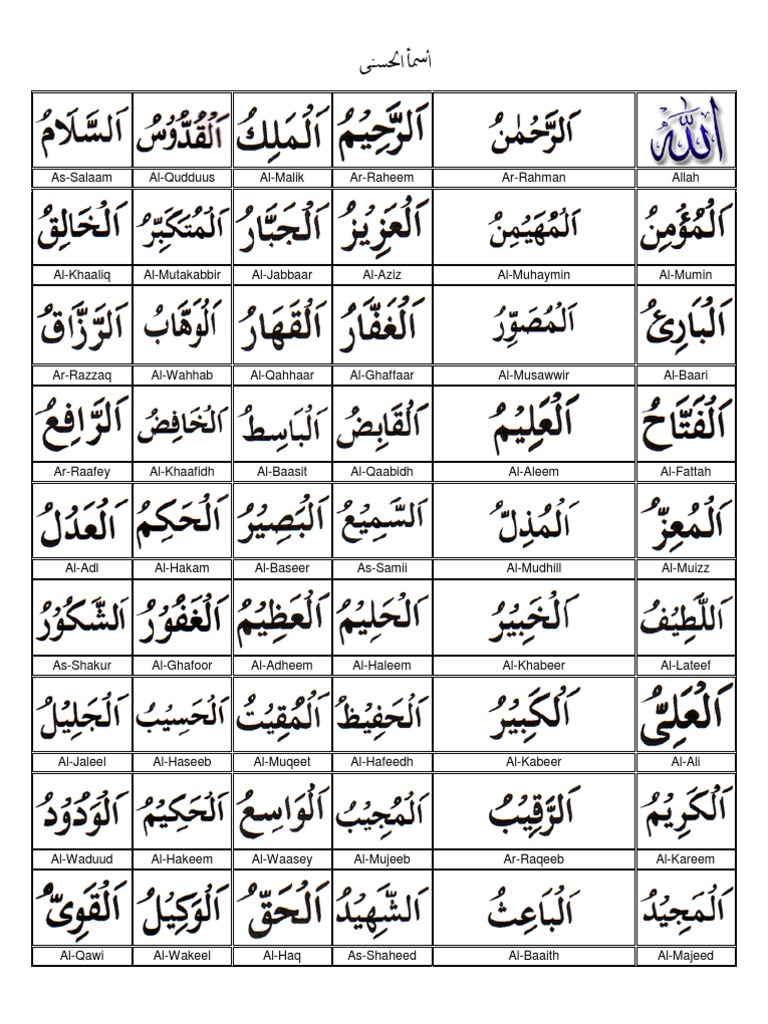 اسمأ الحسنى
اَللّٰهُ اَلرَّحْمٰنُ اَلرَّحِيْمُ اَلْمَلِكُ اَلْقُدُّوْسُ اَلسَّلَامُ
Allah Ar-Rahman Ar-Raheem Al-Malik Al-Qudduus As-Salaam
اَلْمُؤْمِنُ اَلْمُهَيْمِنُ اَلْعَزِيْزُ اَلْجَبَّارُ اَلْمُتَكَبِّرُ اَلْخَالِقُ
Al-Mumin Al-Muhaymin Al-Aziz Al-Jabbaar Al-Mutakabbir Al-Khaaliq
اَلْبَارِئُ اَلْمُصَوِّرُ اَلْغَفَّارُ اَلْقَهَارُ اَلْوَهَّابُ اَلرَّزَّاقُ
Al-Baari Al-Musawwir Al-Ghaffaar Al-Qahhaar Al-Wahhab Ar-Razzaq
اَلْفَتَّاحُ اَلْعَلِيْمُ اَلْقَابِضُ اَلْبَاسِطُ اَلْخَافِضُ اَلرَّافِعُ
Al-Fattah Al-Aleem Al-Qaabidh Al-Baasit Al-Khaafidh Ar-Raafey
اَلْمُعِزُّ اَلْمُذِلُّ اَلسَّمِيْعُ اَلْبَصِيْرُ اَلْحَكِمُ اَلْعَدْلُ
Al-Muizz Al-Mudhill As-Samii Al-Baseer Al-Hakam Al-Adl
اَللَّطِيْفُ اَلْخَبِيْرُ اَلْحَلِيْمُ اَلْعَظِيْمُ اَلْغَفُوْرُ اَلشَّكُوْرُ
Al-Lateef Al-Khabeer Al-Haleem Al-Adheem Al-Ghafoor As-Shakur
اَلْعَلِىُّ اَلْكَبِيْرُ اَلْحَفِيْظُ اَلْمُقِيْتُ اَلْحَسِيْبُ اَلْجَلِيْلُ
Al-Ali Al-Kabeer Al-Hafeedh Al-Muqeet Al-Haseeb Al-Jaleel
اَلْكَرِيْمُ اَلرَّقِيْبُ اَلْمُجِيْبُ اَلْوَاسِعُ اَلْحَكِيْمُ اَلْوَدُوْدُ
Al-Kareem Ar-Raqeeb Al-Mujeeb Al-Waasey Al-Hakeem Al-Waduud
اَلْمَجِيْدُ اَلْبَاعِثُ اَلشَّهِيْدُ اَلْحَقُّ اَلْوَكِيْلُ اَلْقَوِىُّ
Al-Majeed Al-Baaith As-Shaheed Al-Haq Al-Wakeel Al-Qawi